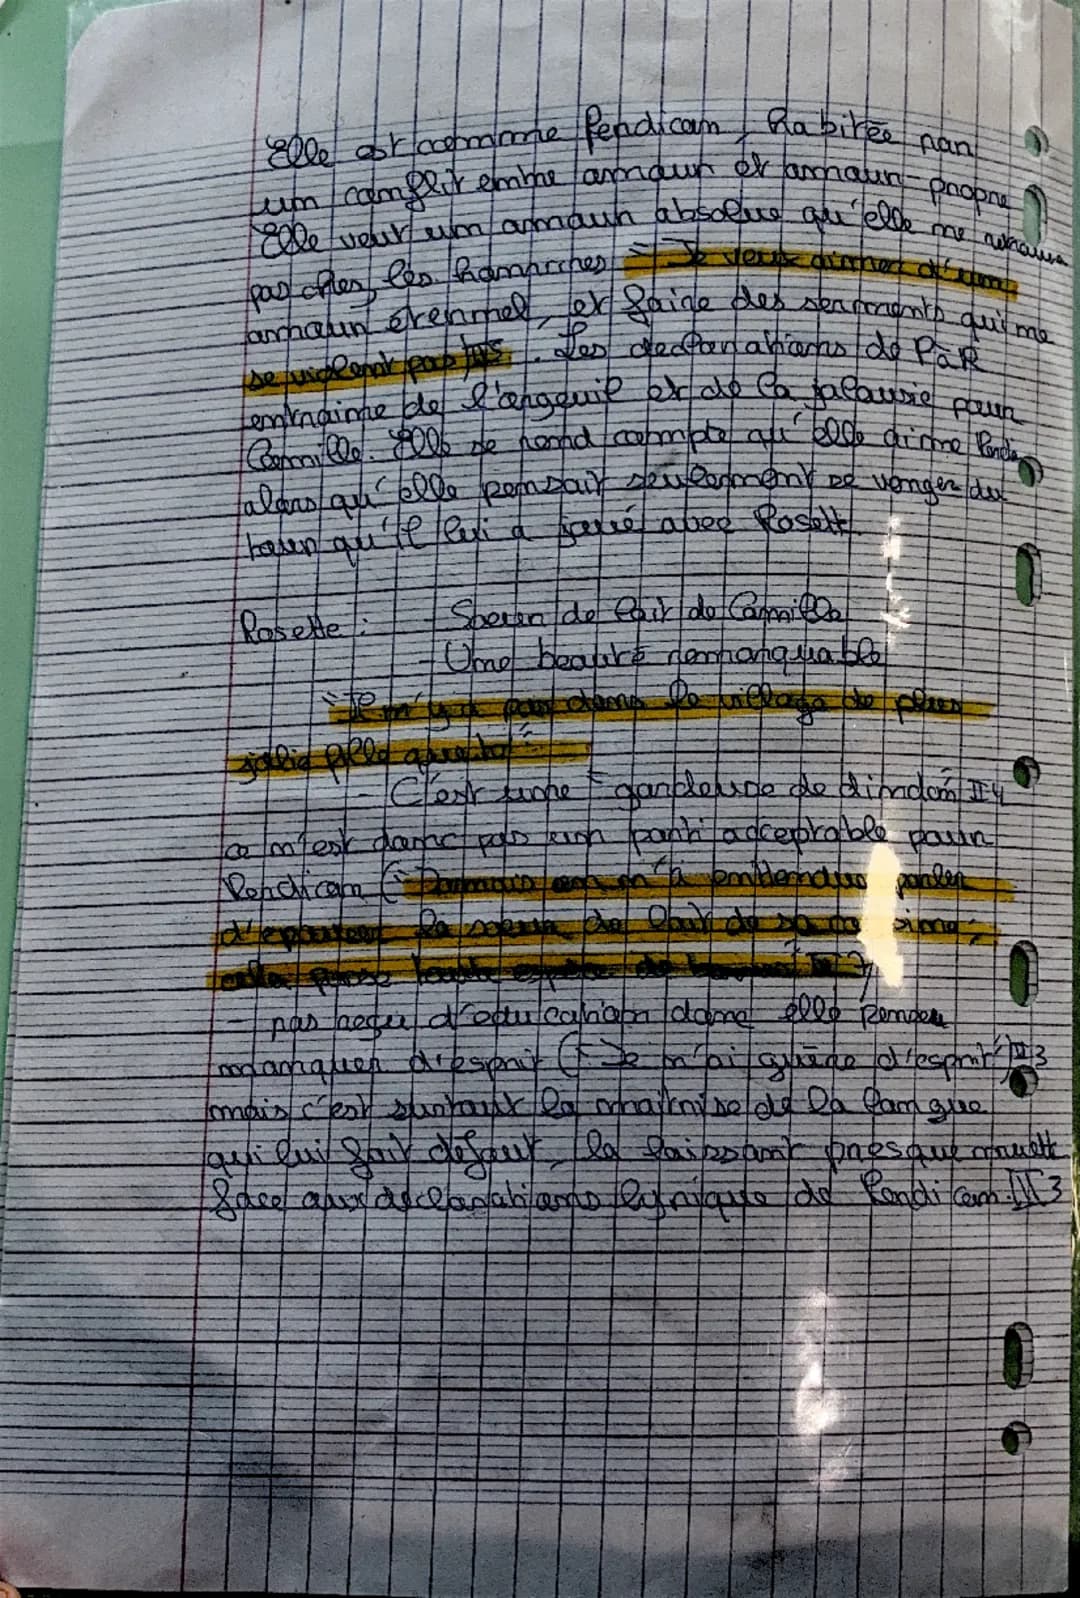 Elle est comme Perdican, habitée par
un conflit entre amour et amour-propre
Elle veut un amour absolue qu'elle ne
pas chez les hommes "Je veux aimer d'un
amour éternel, et faire des serments qui ne
se violent pas"
. Les declarations de P à R
entraine de l'orgeuil et de la jalousie pour
Camille. Elle se rend compte qu'elle aime
alors qu'elle pensait seulement se venger du
tour qu'il lui a joué avec Rosett
Rosette : - Soeur de lait de Camille
- Une beauté remarquable
"Il n'y a pas dans le village de plus
jolie fille que toi"
- C'est une "gardeuse de dindon" II 4
ce n'est donc pas un parti acceptable pour
Perdican ("Jamais on n'a entendue parler
d'epouser la soeur de lait de sa
- pas reçu d'education donc elle
manquer d'esprit ("Je n'ai guère d'esprit" 3
mais c'est surtout la maitrise de la langue
qui lui fait défaut, la laissant presque muett
face aux declarations lyrique de Perdican. III 3